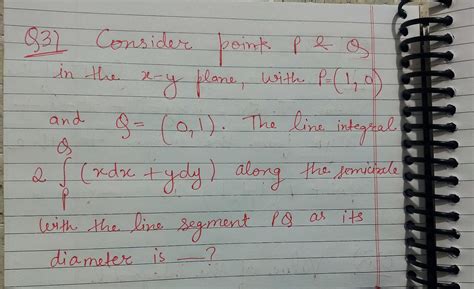 Q3) Consider points P & Q
in the x-y plane, with P=(1,0)
and Q= (0,1). The line integral
2 ∫_P^Q (xdx + ydy) along the semicircle
with the line segment PQ as its
diameter is __?